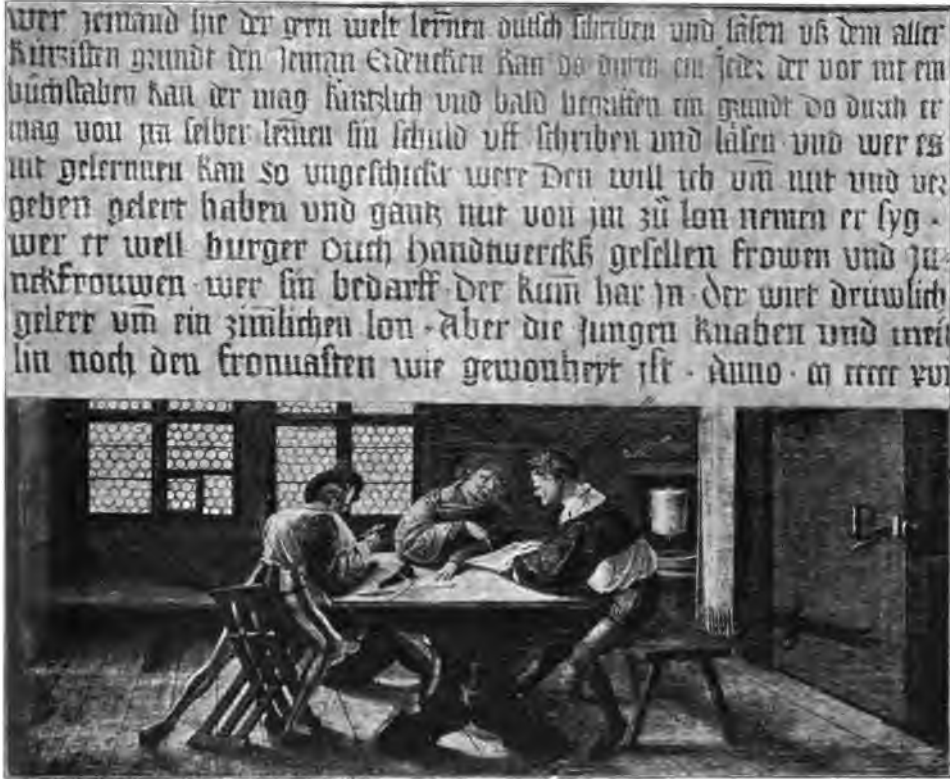 wer jemand hie der gern welt lernen dütsch schriben und läsen uß dem aller
kürtzisten grundt den jeman erdencken kan do durch ein jeder der vor nit ein
büchstaben kan der mag kürtzlich und bald begriffen ein grundt do durch er
mag von jm selber lernen sin schuld uff schriben und läsen und wer es
nit gelernnen kan so ungeschickt were Den will ich um̄ nüt und ver
geben gelert haben und gantz nüt von jm zů lon nemen er syg ·
wer er well burger Ouch handtwerckß gesellen frowen und ju
nckfrouwen · wer sin bedarff · Der kum̄ har jn · der wirt drüwlich
gelert um̄ ein zimlichen lon · Aber die jungen knaben und meit
lin noch den fronuasten wie gewonheyt ist · Anno · m ccccc xvi